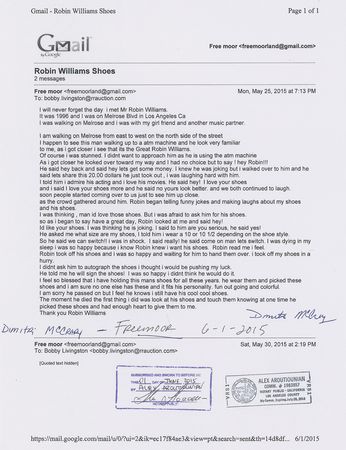 Gmail - Robin Williams Shoes
Page 1 of 1
Gmail
by Google
Free moor <freemoorland@gmail.com>
Robin Williams Shoes
2 messages
Free moor <freemoorland@gmail.com>
Mon, May 25, 2015 at 7:13 PM
To: bobby.livingston@rrauction.com
I will never forget the day i met Mr Robin Williams.
It was 1996 and I was on Melrose Blvd in Los Angeles Ca
I was walking on Melrose and i was with my girl friend and another music partner.
I am walking on Melrose from east to west on the north side of the street
I happen to see this man walking up to a atm machine and he look very familiar
to me, as i got closer i see that its the Great Robin Williams.
Of course i was stunned. I didn't want to approach him as he is using the atm machine
As i got closer he looked over toward my way and I had no choice but to say ! hey Robin!!!
He said hey back and said hey lets get some money. I knew he was joking but I walked over to him and he
said lets share this 20.00 dollars he just took out , i was laughing hard with him.
I told him i admire his acting and i love his movies. He said hey! I love your shoes
and i said I love your shoes more and he said no yours look better. and we both continued to laugh.
soon people started coming over to us just to see him up close.
as the crowd gathered around him. Robin began telling funny jokes and making laughs about my shoes
and his shoes.
I was thinking , man id love those shoes. But i was afraid to ask him for his shoes.
so as i began to say have a great day, Robin looked at me and said hey!
Id like your shoes. I was thinking he is joking. I said to him are you serious, he said yes!
He asked me what size are my shoes, I told him i wear a 10 or 10 1/2 depending on the shoe style.
So he said we can switch!! i was in shock. I said really! he said come on man lets switch. I was dying in my
sleep i was so happy because i know Robin knew i want his shoes. Robin read me i feel.
Robin took off his shoes and i was so happy and waiting for him to hand them over. i took off my shoes in a
hurry.
I didnt ask him to autograph the shoes i thought i would be pushing my luck.
He told me he will sign the shoes! I was so happy i didnt think he would do it.
I feel so blessed that i have holding this mans shoes for all these years. he wear them and picked these
shoes and i am sure no one else has these and it fits his personality, fun out going and colorful.
I am sorry he passed on but I feel he knows i still have his cool shoes.
The moment he died the first thing i did was look at his shoes and touch them knowing at one time he
picked these shoes and had enough heart to give them to me.
Thank you Robin Williams
Dimitri McCrary - FREEMOOR 6-1-2015
Free moor <freemoorland@gmail.com>
Sat, May 30, 2015 at 2:19 PM
To: Bobby Livingston <bobby.livingston@rrauction.com>
[Quoted text hidden]
SUBSCRIBED AND SWORN TO BEFORE ME
THIS 01 JUNE 2015
BY ALEX AROUTIOUNIAN
ALEX AROUTIOUNIAN
NOTARY PUBLIC - CALIFORNIA
LOS ANGELES COUNTY
https://mail.google.com/mail/u/0/?ui=2&ik=ec17f84ae3&view=pt&search=sent&th=14d8df...
6/1/2015